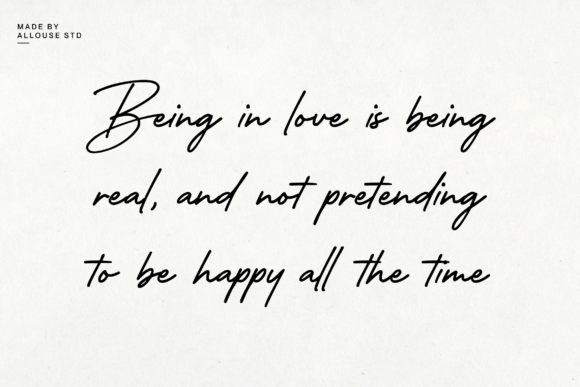 MADE BY
ALLOUSE STD
Being in love is being
real, and not pretending
to be happy all the time